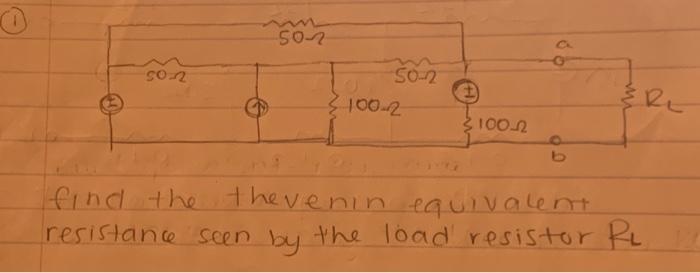 1
50Ω
a
50Ω
50Ω
100Ω
RL
100Ω
b
find the thevenin equivalent
resistance seen by the load resistor RL